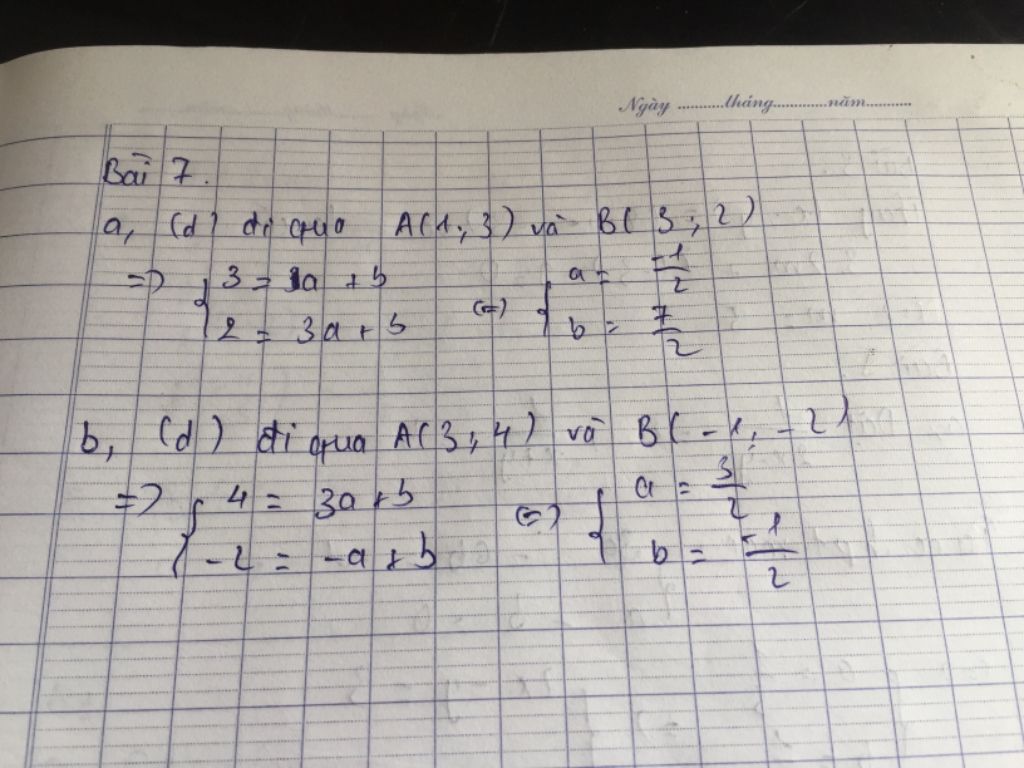 Ngày ...........tháng............năm...........
Bài 7.
a, (d) đi qua A(1; 3) và B( 3 ; 2)
=> { 3 = 1a + b (=) { a = -1/2
2 = 3a + b b = 7/2
b, (d) đi qua A(3; 4) và B( -1; -2)
=> { 4 = 3a + b (=) { a = 3/2
-2 = -a + b b = -1/2